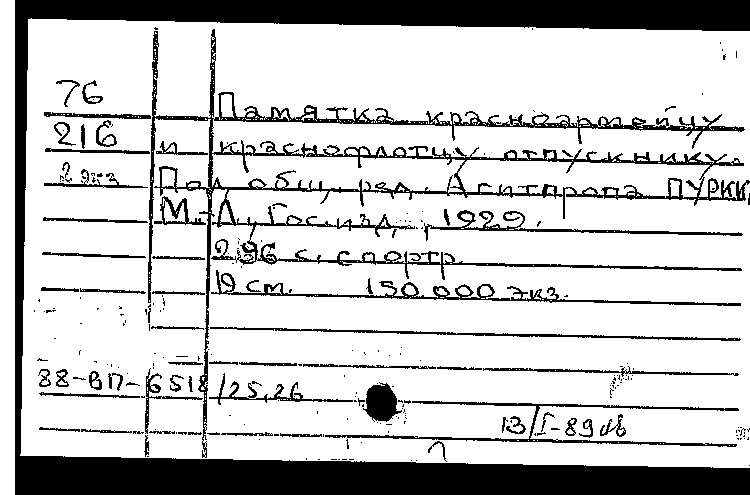 76
Памятка красноармейцу
216
и краснофлотцу отпускнику.
2 экз
Под общ. ред. Агитпропа ПУРКК
М.-Л., Гос. изд., 1929.
296 с. с портр.
19 см. 150.000 экз.
88-ВП-6518/25,26
13/I-89